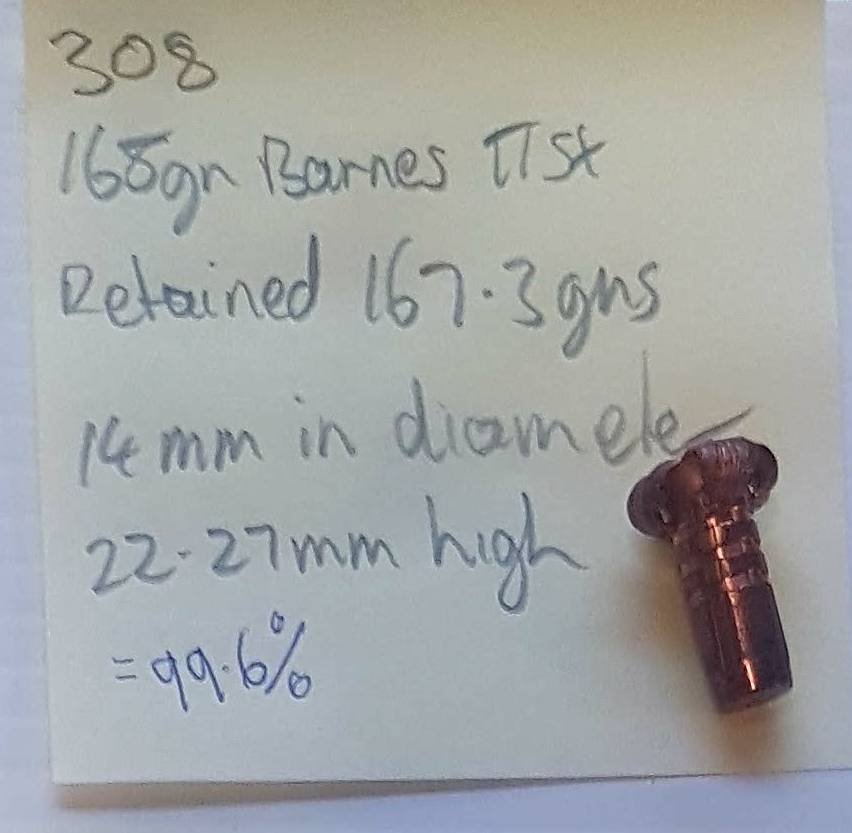 308
168gn Barnes TTSX
Retained 167.3gns
14mm in diameter
22.27mm high
=99.6%